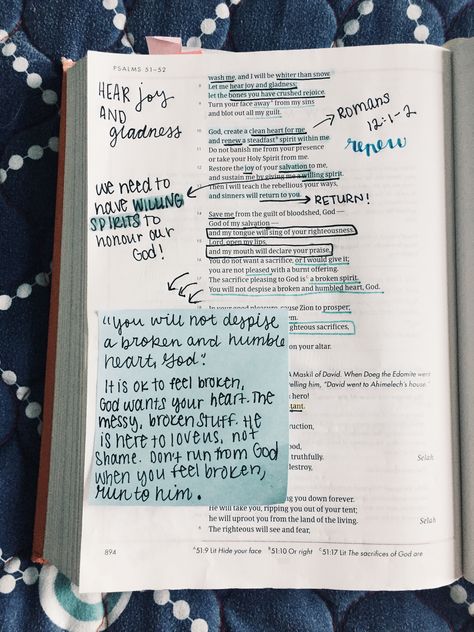 PSALMS 51–52
HEAR JOY
AND
gladness
we need to
have WILLING
SPIRITS to
honour our
God!
wash me, and I will be whiter than snow.
8 Let me hear joy and gladness;
let the bones you have crushed rejoice.
9 Turn your face away^A from my sins
and blot out all my guilt.
10 God, create a clean heart for me
and renew a steadfast^B spirit within me.
11 Do not banish me from your presence
or take your Holy Spirit from me.
12 Restore the joy of your salvation to me,
and sustain me by giving me a willing spirit.
13 Then I will teach the rebellious your ways,
and sinners will return to you.
14 Save me from the guilt of bloodshed, God —
God of my salvation —
and my tongue will sing of your righteousness.
15 Lord, open my lips,
and my mouth will declare your praise.
16 You do not want a sacrifice, or I would give it;
you are not pleased with a burnt offering.
17 The sacrifice pleasing to God is^C a broken spirit.
You will not despise a broken and humbled heart, God.
18 In your good pleasure, cause Zion to prosper;
em.
ghteous sacrifices,
on your altar.
Romans
12:1-2
renew
RETURN!
"you will not despise
a broken and humble
heart, God."
It is ok to feel broken,
God wants your heart. The
messy, broken stuff. He
is here to love us, not
shame. Don't run from God
when you feel broken,
run to him.
A Maskil of David. When Doeg the Edomite went
telling him, "David went to Ahimelech's house."
hero!
tant.
ruction,
ood,
truthfully. Selah
destroy,
ng you down forever.
He will take you, ripping you out of your tent;
he will uproot you from the land of the living. Selah
6 The righteous will see and fear,
894
^A51:9 Lit Hide your face ^B51:10 Or right ^C51:17 Lit The sacrifices of God are